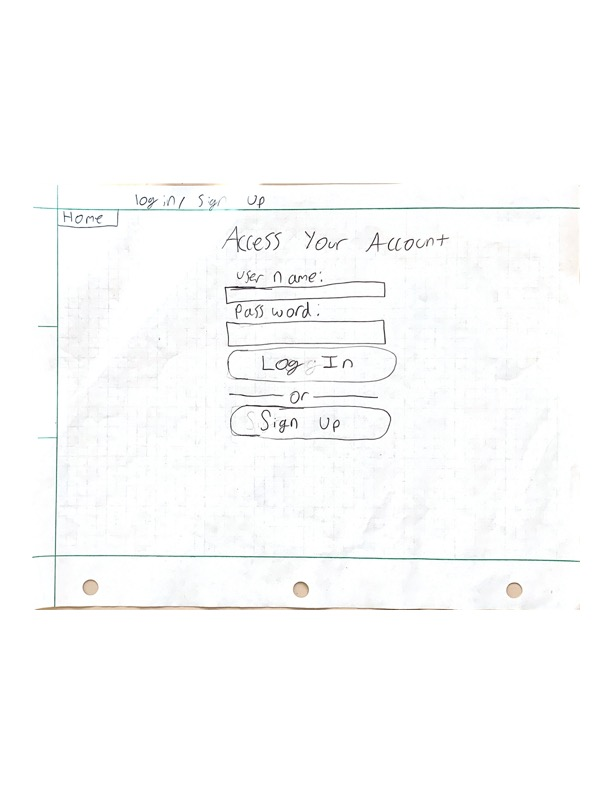 log in/ Sign Up
Home
Access Your Account
user name:
Password:
Log In
or
Sign Up